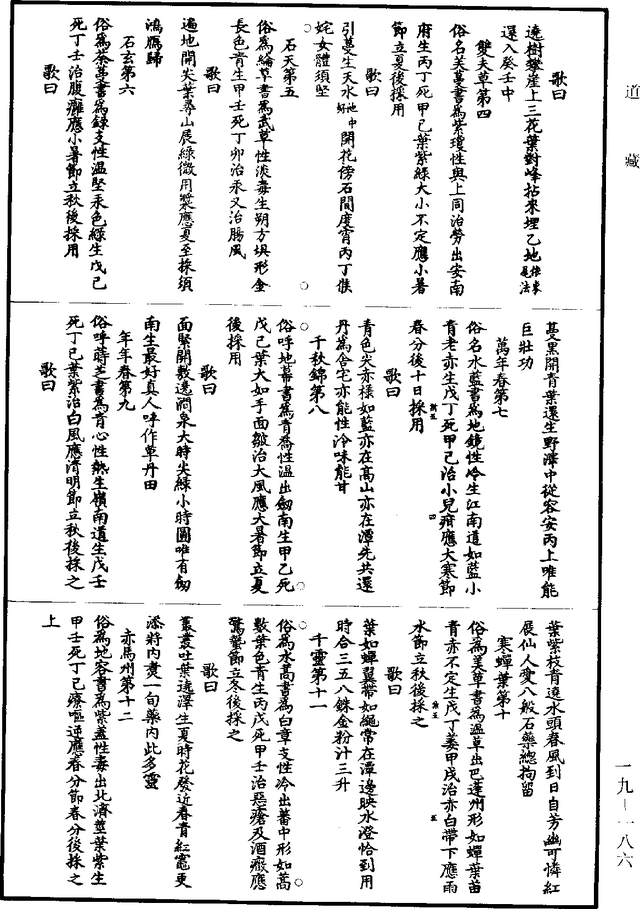 道藏
歌曰
遶樹攀崖上三花葉對峰拈來埋乙地
還入癸壬中
雙夫草第四
俗名芙蓉書為紫瓊性與上同治勞出安南
府生丙丁死甲己葉紫綠大小不定應小暑
節立夏後採用
歌曰
引蔓生天水開花傍石間度霄丙丁候
姹女體須堅
石天第五
俗為綸草書為武草性淡毒生朔方垻形金
長色青生甲壬死丁卯治汞又治腸風
歌曰
遍地開尖葉尋山展綠微用漿應夏至採須
鴻鴈歸
石玄第六
俗為荼蓦書為錄支性溫堅汞色綠生戊己
死丁壬治腹癰應小暑節立秋後採用
歌曰
蔓黑開青葉還生野澤中從容安丙上唯能
巨壯功
萬年春第七
俗名水藍書為地鏡性冷生江南道如藍小
青老亦生戊丁死甲己治小兒疳應大寒節
春分後十日採用
歌曰
青色尖亦樣如藍亦在高山亦在潭先共還
丹為舍宅亦能性冷味能甘
千秋錦第八
俗呼地幕書為青喬性溫出劒南生甲乙死
戊己葉大如手面皺治大風應大暑節立夏
後採用
歌曰
面緊開數遶澗泉大時尖綠小時圓唯有劒
南生最好真人呼作草丹田
年年春第九
俗呼蒔芝書為育心性熱生嶺南道生戊壬
死丁己葉紫治白風應清明節立秋後採之
歌曰
葉紫枝青遶水頭春風到日自芳幽可憐紅
展仙人愛八般石藥總拘留
寒蟬葉第十
俗為美草書為溫草出巴蓬州形如蟬葉苗
青赤不定生戊丁萎甲戌治赤白帶下應雨
水節立秋後採之
歌曰
葉如蟬翼帶如繩常在潭邊映水澄恰到用
時合三五八銖金粉汁三升
千靈第十一
俗為水蒿書為白章支性冷出蕃中形如蒿
數葉色青生丙戊死甲壬治惡瘡及酒癥應
驚蟄節立冬後採之
歌曰
叢叢吐葉遶澤生夏時花發近春青紅竈更
添將內煑一旬藥內此多靈
赤馬州第十二
俗為地容書為紫蓋性毒出北濟莖葉紫生
甲壬死丁己療嘔逆應春分節春分後採之
上
一九—一八六